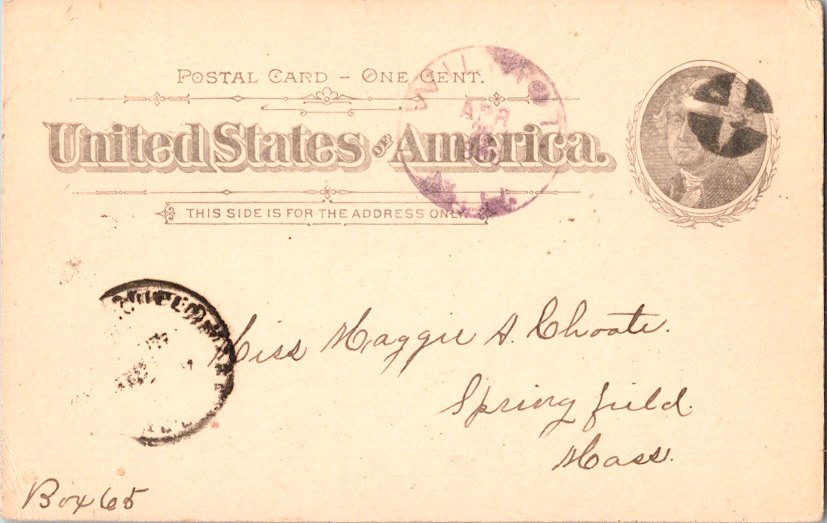 POSTAL CARD – ONE CENT.
United States of America.
THIS SIDE IS FOR THE ADDRESS ONLY.
WILMOT
APR
Miss Maggie A. Choate.
Springfield.
Mass.
Box 65